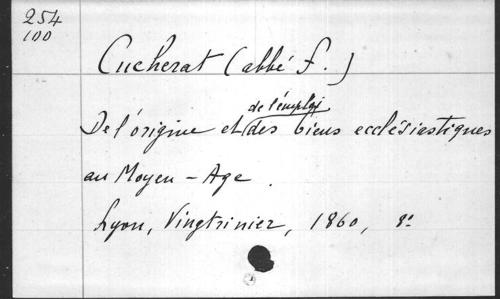 254
100
Cucherat (abbé F.)
De l'origine et de l'emploi des biens ecclésiastiques
au Moyen-Age.
Lyon, Vingtrinier, 1860, 8°